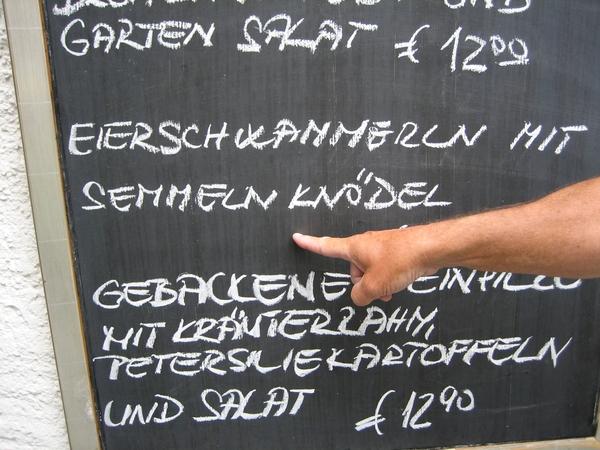 UND
GARTEN SALAT € 12,90
EIERSCHWAMMERLN MIT
SEMMELN KNÖDEL
GEBACKENE
MIT KRÄUTERRAHM,
PETERSILIEKARTOFFELN
UND SALAT € 12,90